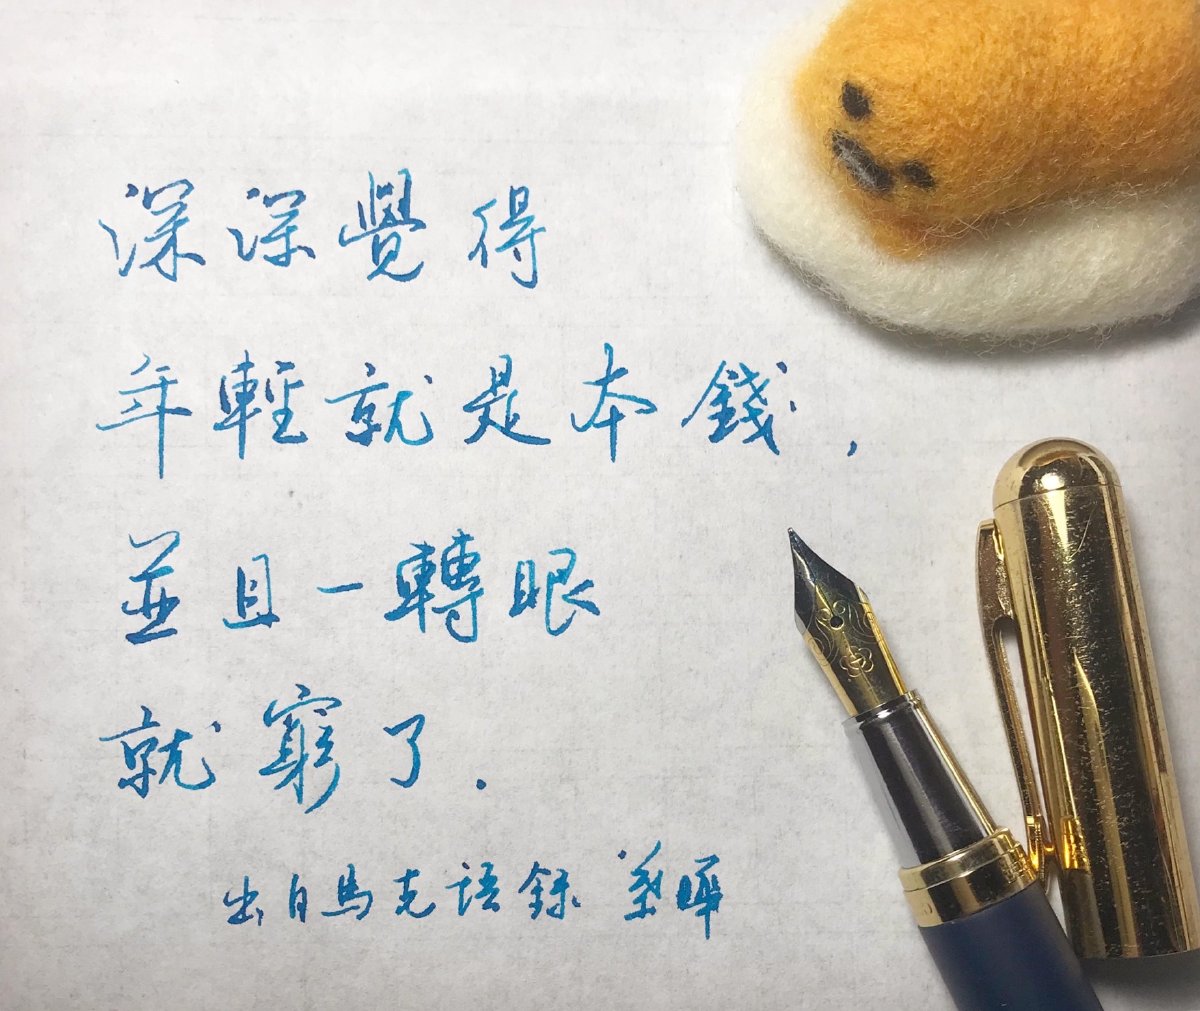 深深覺得
年輕就是本錢,
並且一轉眼
就窮了.
出自馬克語錄